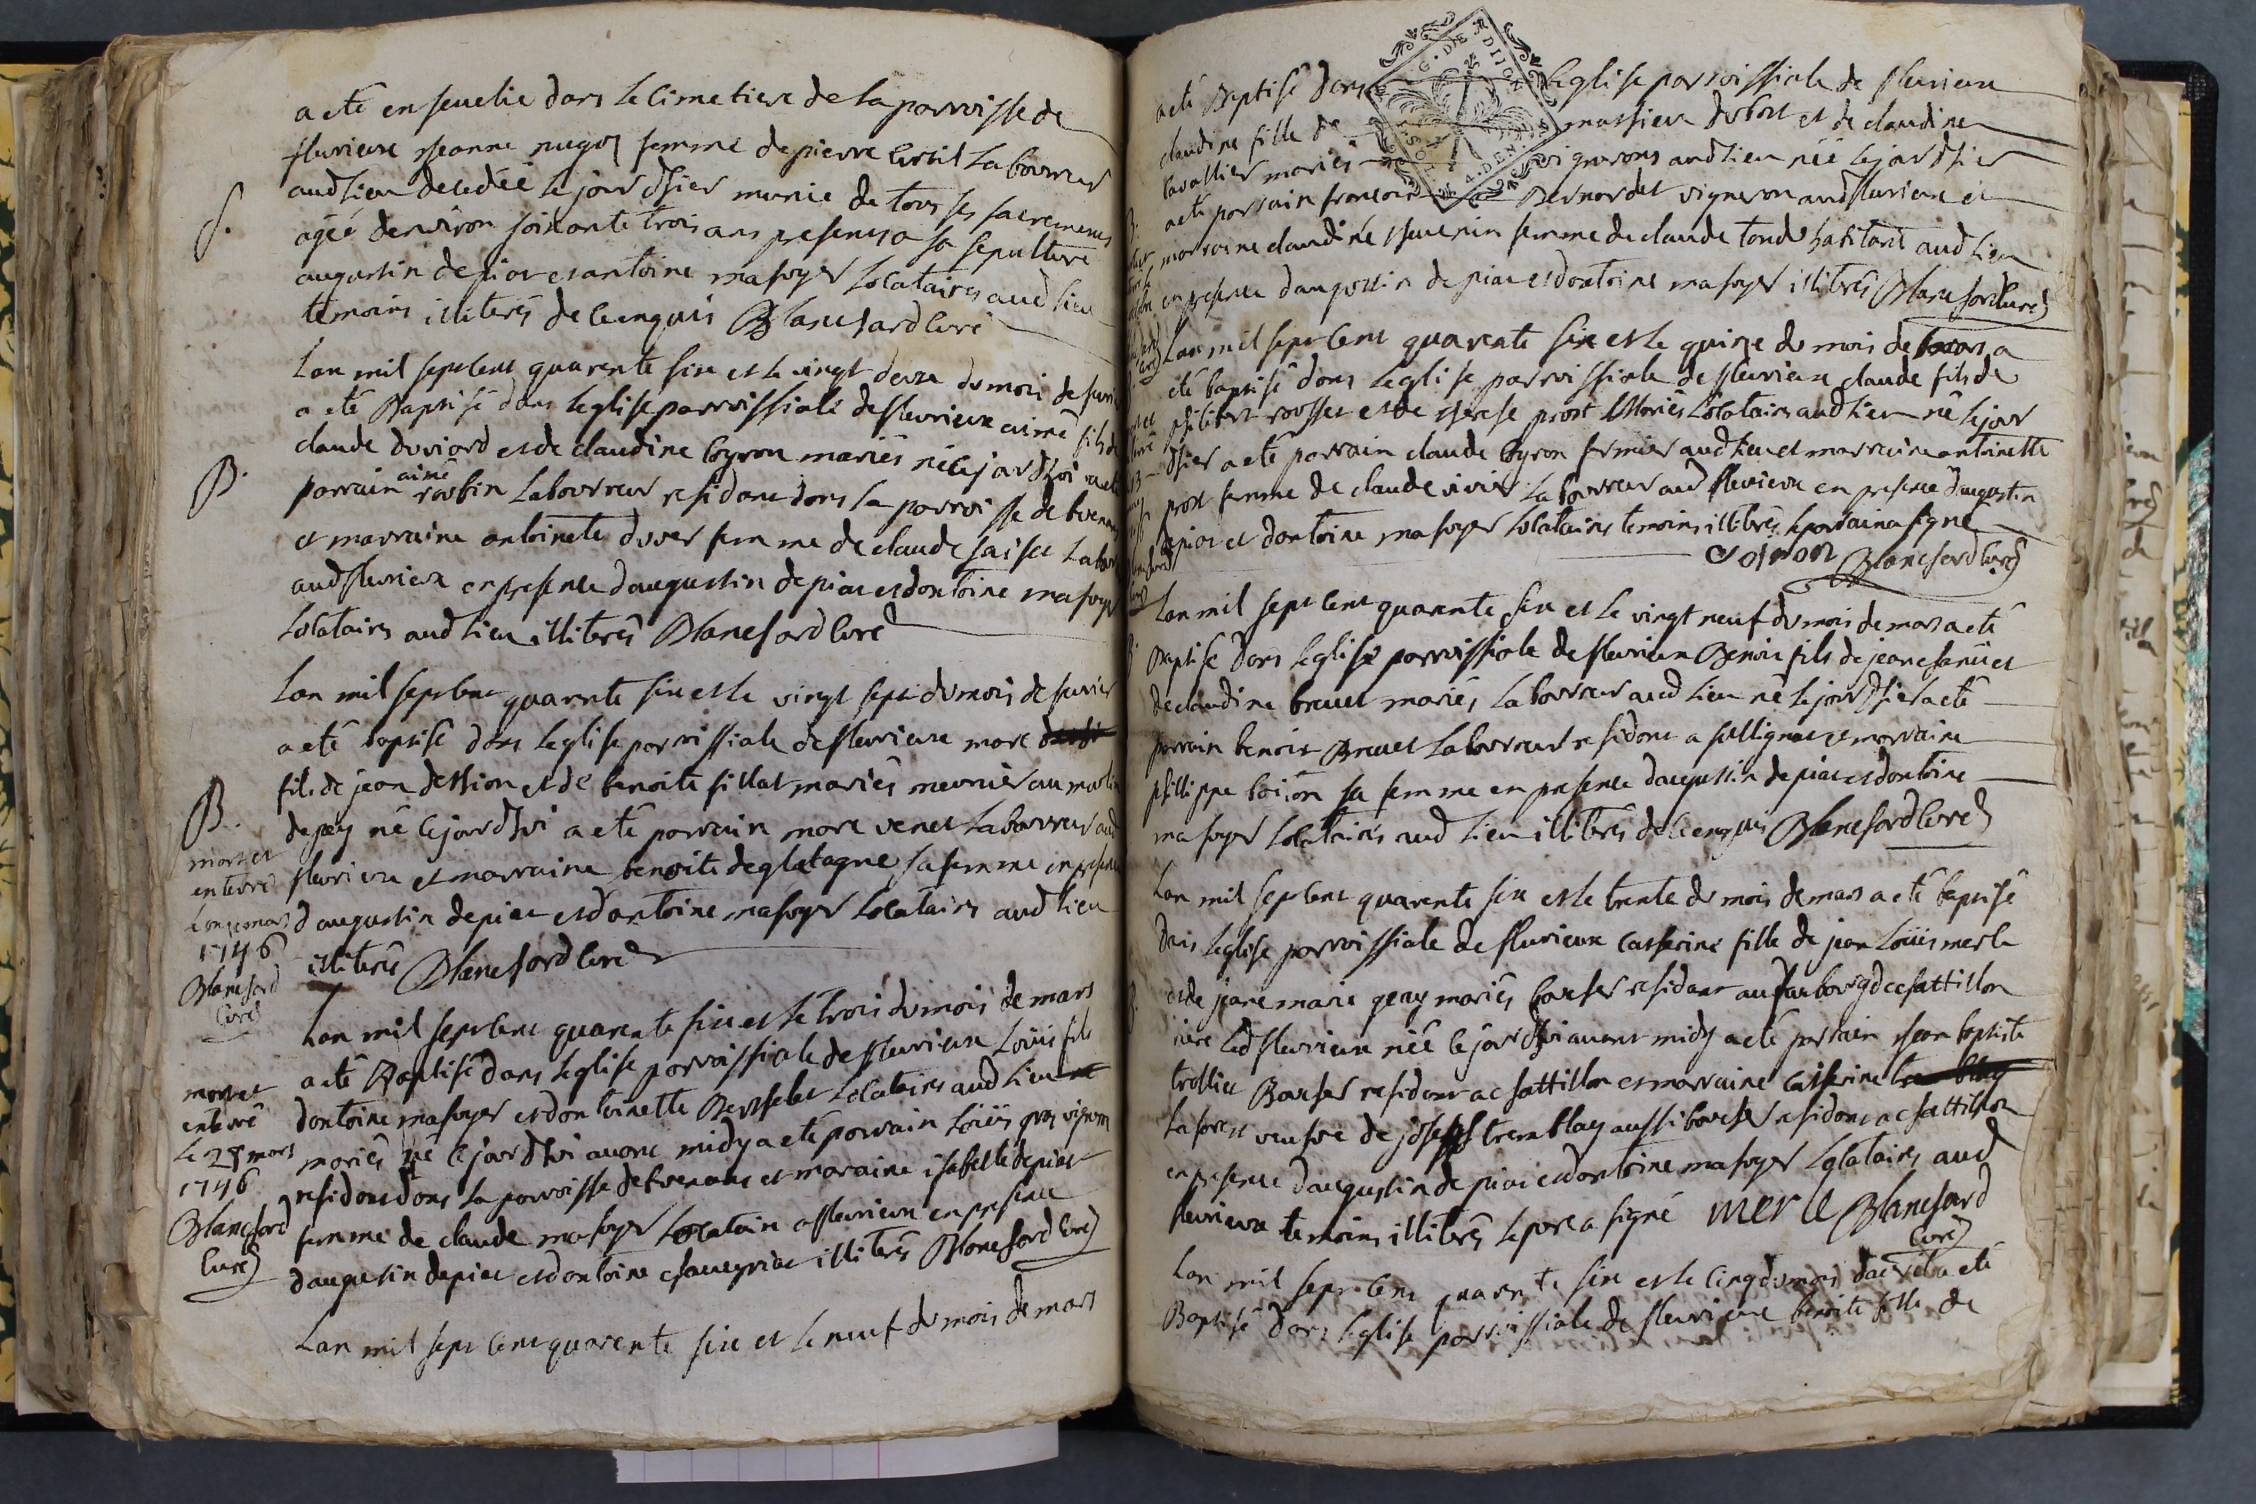 a eté enseuelie dans le cimetiere de la parroisse de
fleurieux jeanne nugoz femme de pierre cortil laboureur
aud lieu decedeé le jour dhier munie de tous ses sacremens
S.
ageé denviron soixante trois ans presens a sa sepulture
augustin depiar et antoine masoyer locataires aud lieu
temoins illiterés de ce enquis Blanchard curé
Lan mil sept cent quarente six et le vingt deux du moi de fevri
a eté Baptisé dans leglise parroissiale de fleurieux aimé fils de
claude duviard et de claudine Coyron mariés né le jourdhui a eté
B.
parrain aimé robin laboureur residant dans la parroisse de buenans
et marraine antoinette duver femme de claude saiset labou
aud fleurieux en presence daugustin depiar et dantoine masoyer
locataires aud lieu illiterés Blanchard curé
Lan mil sept cent quarente six et le vingt sept du mois de fevrier
a eté baptisé dans leglise parroissiale de fleurieux marc
fils de jean dethion et de benoite fillat mariés meunier au moulin
B.
depey né le jourdhui a eté parrain marc venet laboureur aud
mort et
enterré
le onze mars
1746
Blanchard
Curé
fleurieux et marraine benoite deglatagne sa femme en presence
daugustin depiar et dantoine masoyer locataires aud lieu
illiterés Blanchard curé
Lan mil sept cent quarente six et le trois du mois de mars
a eté Baptisé dans leglise parroissiale de fleurieux Loüis fils
mort et
enterré
le 28 mars
1746
Blanchard
Curé
dantoine masoyer et dantoinette Berthelet locataires aud lieu
mariés né le jourdhui avant midy a eté parrain Loüis gros vigneron
residant dans la parroisse de buenans et maraine isabelle depiar
femme de claude masoyer locataire a fleurieux en presence
daugustin depiar et dantoine chaueyriat illiterés Blanchard curé
Lan mil sept cent quarente six et le neuf du mois de mars
a eté Baptisé dans leglise parroissiale de fleurieux
G. DE DIJON
SOL. 4. DEN.
claudine fille de massieux dubost et de claudine
cavallier mariés vignerons aud lieu neé le jour dhier
a eté parrain francois Bernardet vigneron aud fleurieux et
marraine claudine theuenin femme de claude tondu habitant aud lieu
en presence daugustin depiar et dantoine masoyer illiterés Blanchard curé
Lan mil sept cent quarente six et le quinze du mois de mars a
eté baptisé dans leglise parroissiale de fleurieux claude fils de
philibert rousset et de therese prost Mariés locataires aud lieu né le jour
dhier a eté parrain claude Coyron fermier aud lieu et marraine antoinette
prost femme de claude vivier laboureur aud fleurieux en presence daugustin
depiar et dantoine masoyer locataires temoins illiterés le parrain a signé
Coiron Blanchard curé
Lan mil sept cent quarente six et le vingt neuf du mois de mars a eté
Baptisé dans leglise parroissiale de fleurieux Benoi fils de jean chanüet
de claudine breuet mariés laboureur aud lieu né le jour dhier a eté
parrain benoit Breuet laboureur residant a sulligna et marraine
phillippe loison sa femme en presence daugustin depiar et dantoine
masoyer locataires aud lieu illiterés de ce enquis Blanchard curé
Lan mil sept cent quarente six et le trente du mois de mars a eté baptisé
dans leglise parroissiale de fleurieux catherine fille de jean Loüis merle
et de jeane marie geay mariés boucher residant au faubourg de chattillon
riere led fleurieux neé le jourdhui avant midy a eté parrain jean baptiste
trollier Boucher residant a chattillon et marraine catherine
laforest veufve de joseph tremblay aussi boucher residant a chattillon
en presence daugustin depiar et dantoine masoyer locataires aud
fleurieux temoins illiterés le pere a signé merle Blanchard
curé
Lan mil sept cent quarente six et le cinq du mois davril a eté
Baptisé dans leglise parroissiale de fleurieux benoite fille de